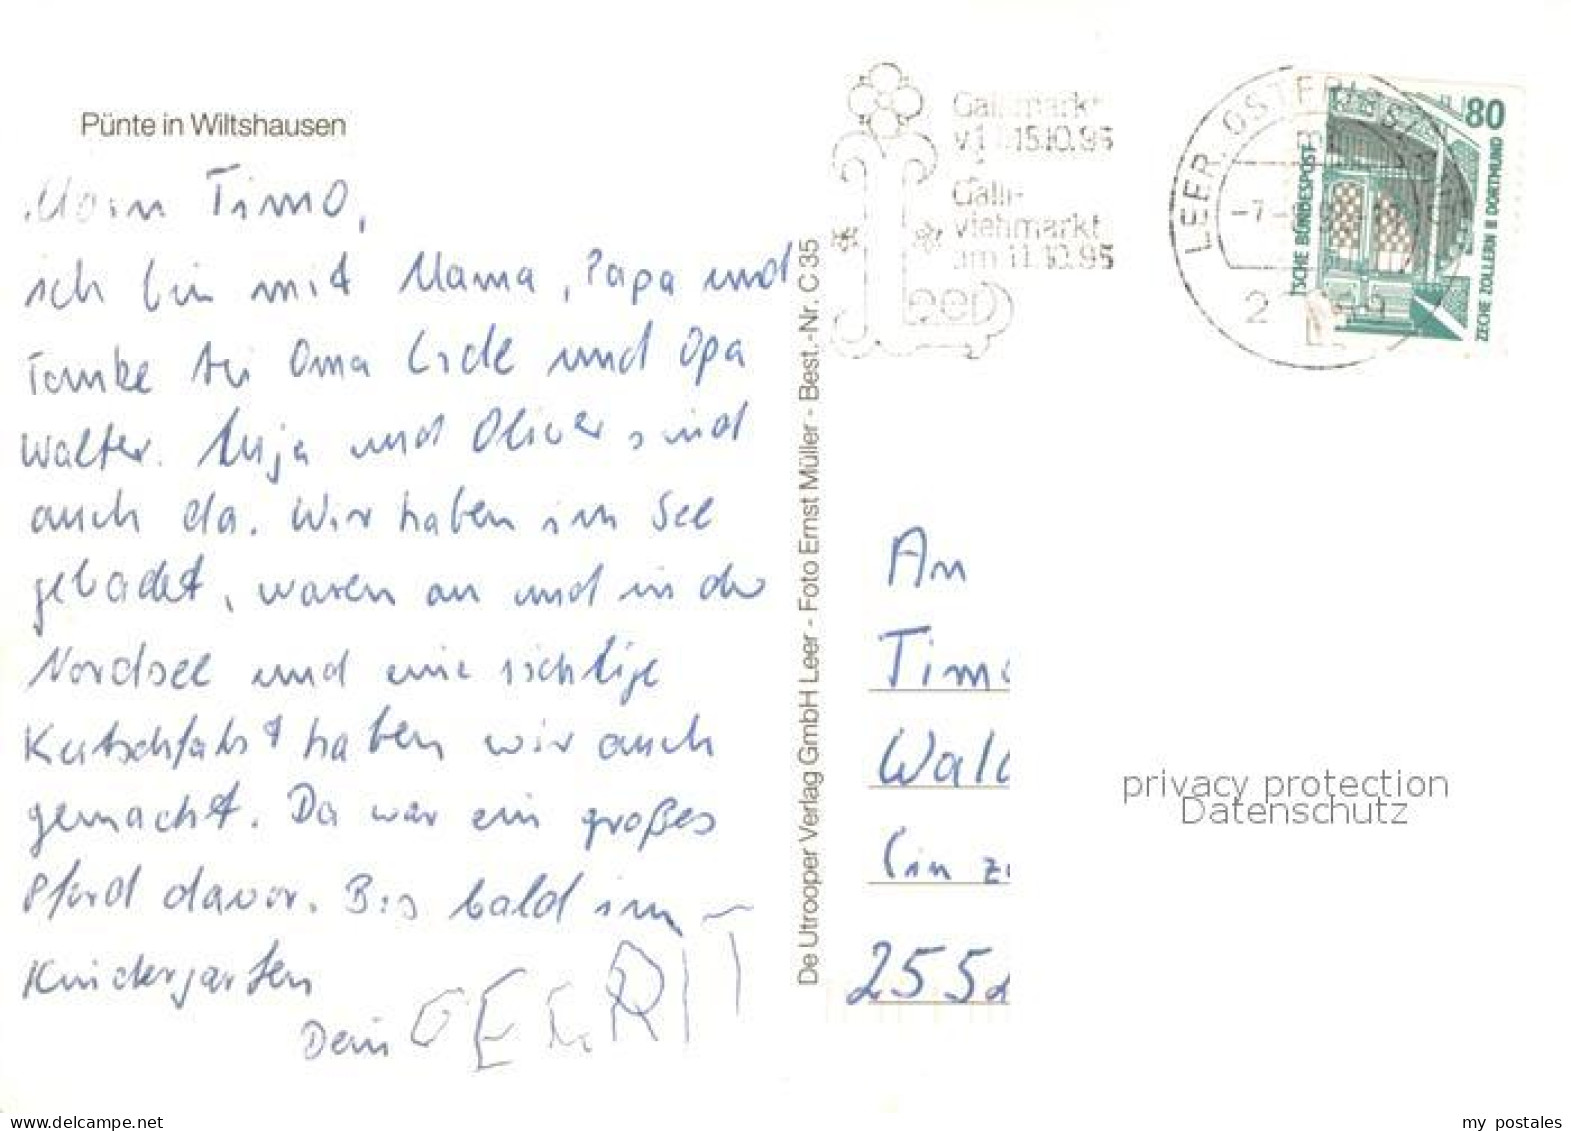 Pünte in Wiltshausen
Moin Timo,
ich bin mit Mama, Papa und
Tomke bei Oma Lide und Opa
Walter. Anja und Oliver sind
auch da. Wir haben im See
gebadet, waren an und in der
Nordsee und eine richtige
Kutschfahrt haben wir auch
gemacht. Da war ein großes
Pferd davor. Bis bald im
Kindergarten
Dein GERRIT
De Utrooper Verlag GmbH Leer - Foto Ernst Müller - Best.-Nr. C 35
Gallimarkt
15.10.95
Galli-
viehmarkt
am 11.10.95
Leer
LEER, OSTFRIESL
80
DEUTSCHE BUNDESPOST
ZECHE ZOLLERN II DORTMUND
An
Timo
Wal
255
privacy protection
Datenschutz
www.delcampe.net
my_postales